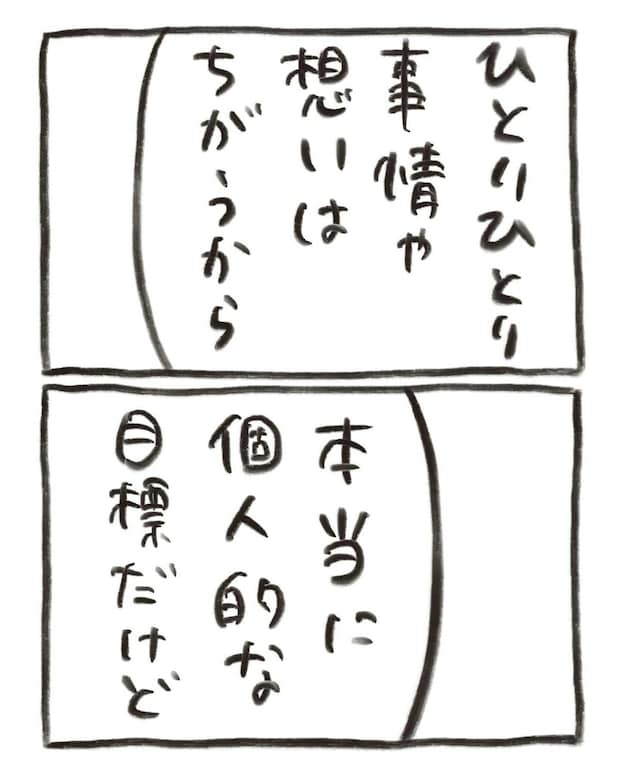 ひとりひとり
事情や
想いは
ちがうから
本当に
個人的な
目標だけど